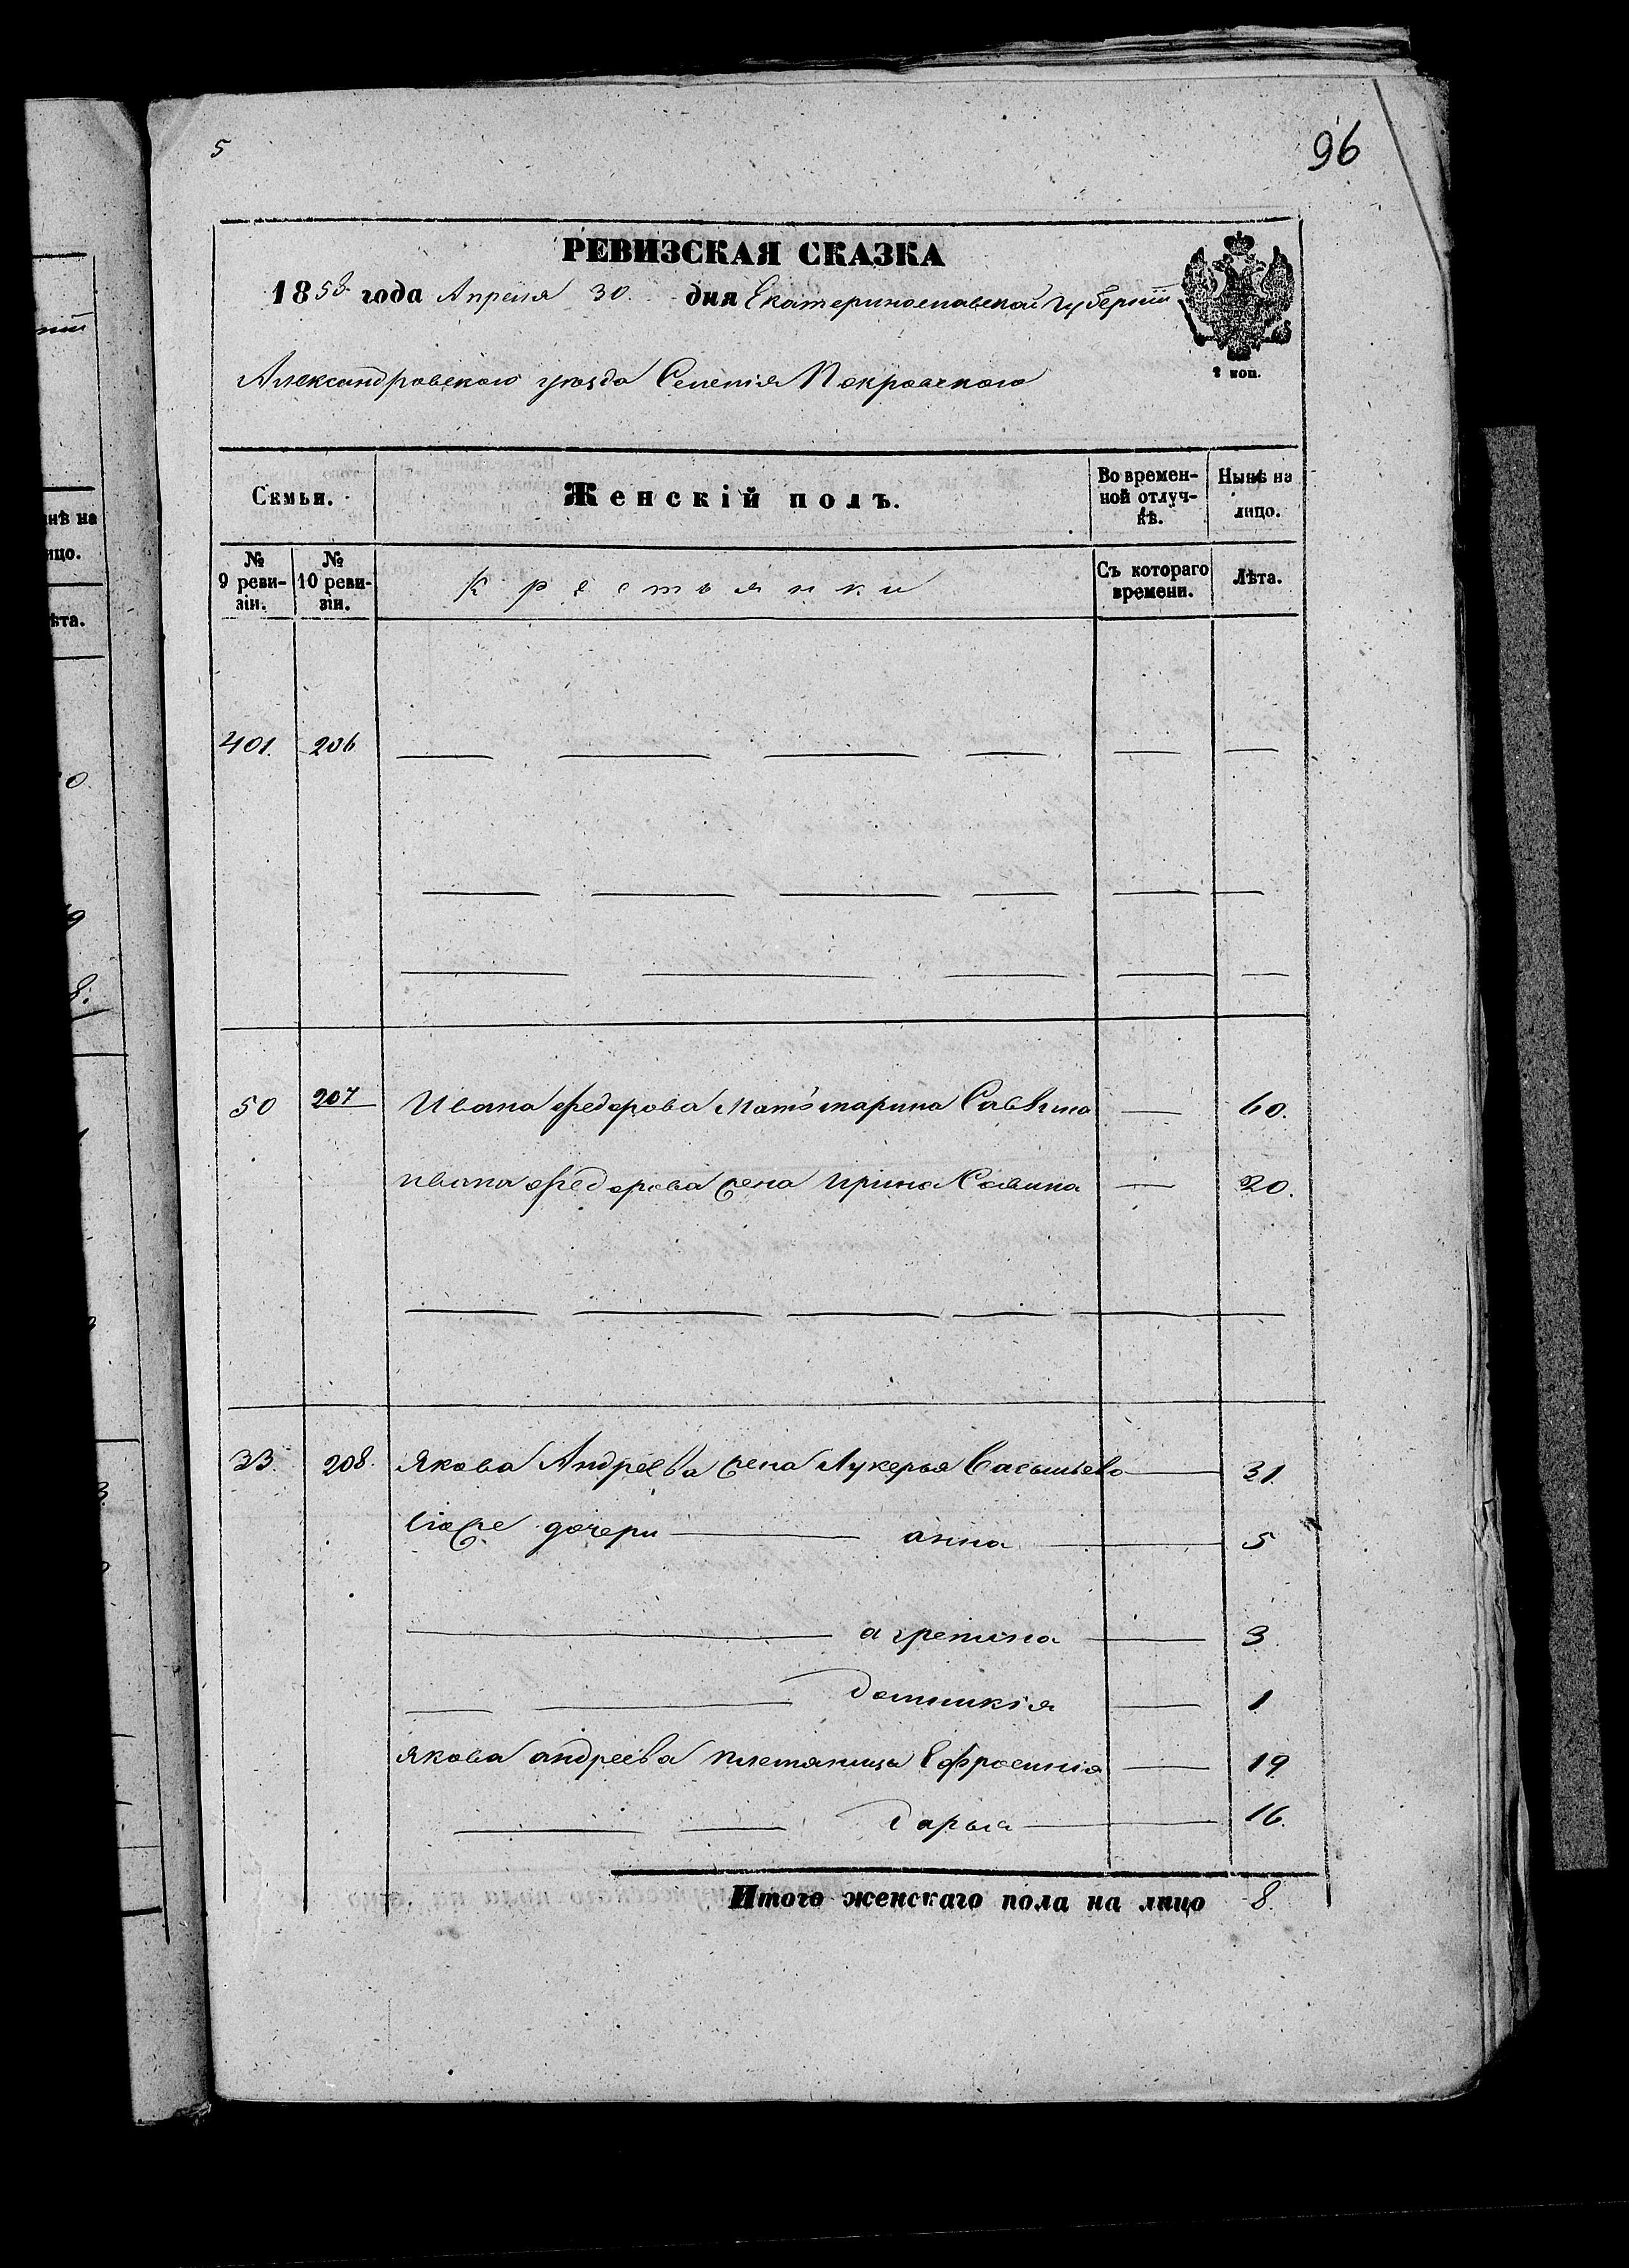 5
96
РЕВИЗСКАЯ СКАЗКА
1858 года Апреля 30. дня Екатеринославской Губернiи
Александровского уезда Селения Покровского
2 коп.
Семьи.
Женскiй полъ.
Во времен-
ной отлуч-
кѣ.
Нынѣ на
лицо.
№
9 реви-
зiи.
№
10 реви-
зiи.
Крестьянки
Съ котораго
времени.
Лѣта.
401. 206
50 207 Ивана Федорова Мать марина Саввина — 60.
ивана Федорова жена Ирина Савина — 20.
33. 208. Якова Андреева жена Лукерья Васильева — 31.
ихже дочери — анна — 5
агрепина — 3.
Домникiя — 1
якова андреева племяница Ефросинiя — 19.
Дарья — 16.
Итого женскаго пола на лицо 8.